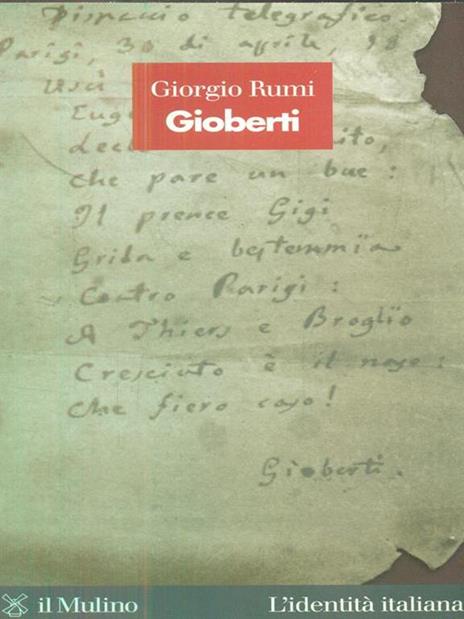 Dispaccio telegrafico.
Parigi, 30 di aprile, 18
Giorgio Rumi
Gioberti
Uscì
Euge
dec ito,
che pare un bue:
Il prence Gigi
Grida e bestemmia
Contro Parigi:
A Thiers e Broglio
Cresciuto è il naso:
Che fiero caso!
Gioberti.
il Mulino
L'identità italiana